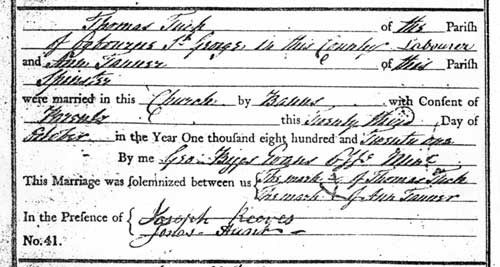 Thomas Tuck of the Parish
of Ogbourne St. George in this County Labourer
and Ann Tanner of this Parish
Spinster
were married in this Church by Banns with Consent of
Parents this Twenty third Day of
October in the Year One thousand eight hundred and Twenty one
By me Geo. Offg. Minr.
This Marriage was solemnized between us { The mark of Thomas Tuck
The mark of Ann Tanner
In the Presence of { Joseph Reeves
Jonas Hunt
No. 41.